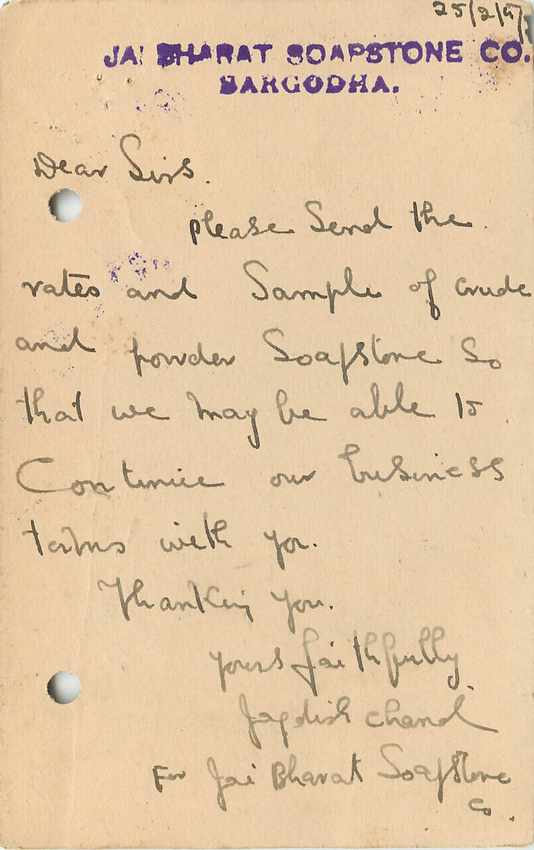 25/2/47
JAI BHARAT SOAPSTONE CO.
SARGODHA.
Dear Sirs.
please Send the
rates and Sample of crude
and powder Soapstone So
that we may be able to
Continue our business
terms with you.
Thanking you.
yours faithfully
Jagdish chand
For Jai Bharat Soapstone
Co.